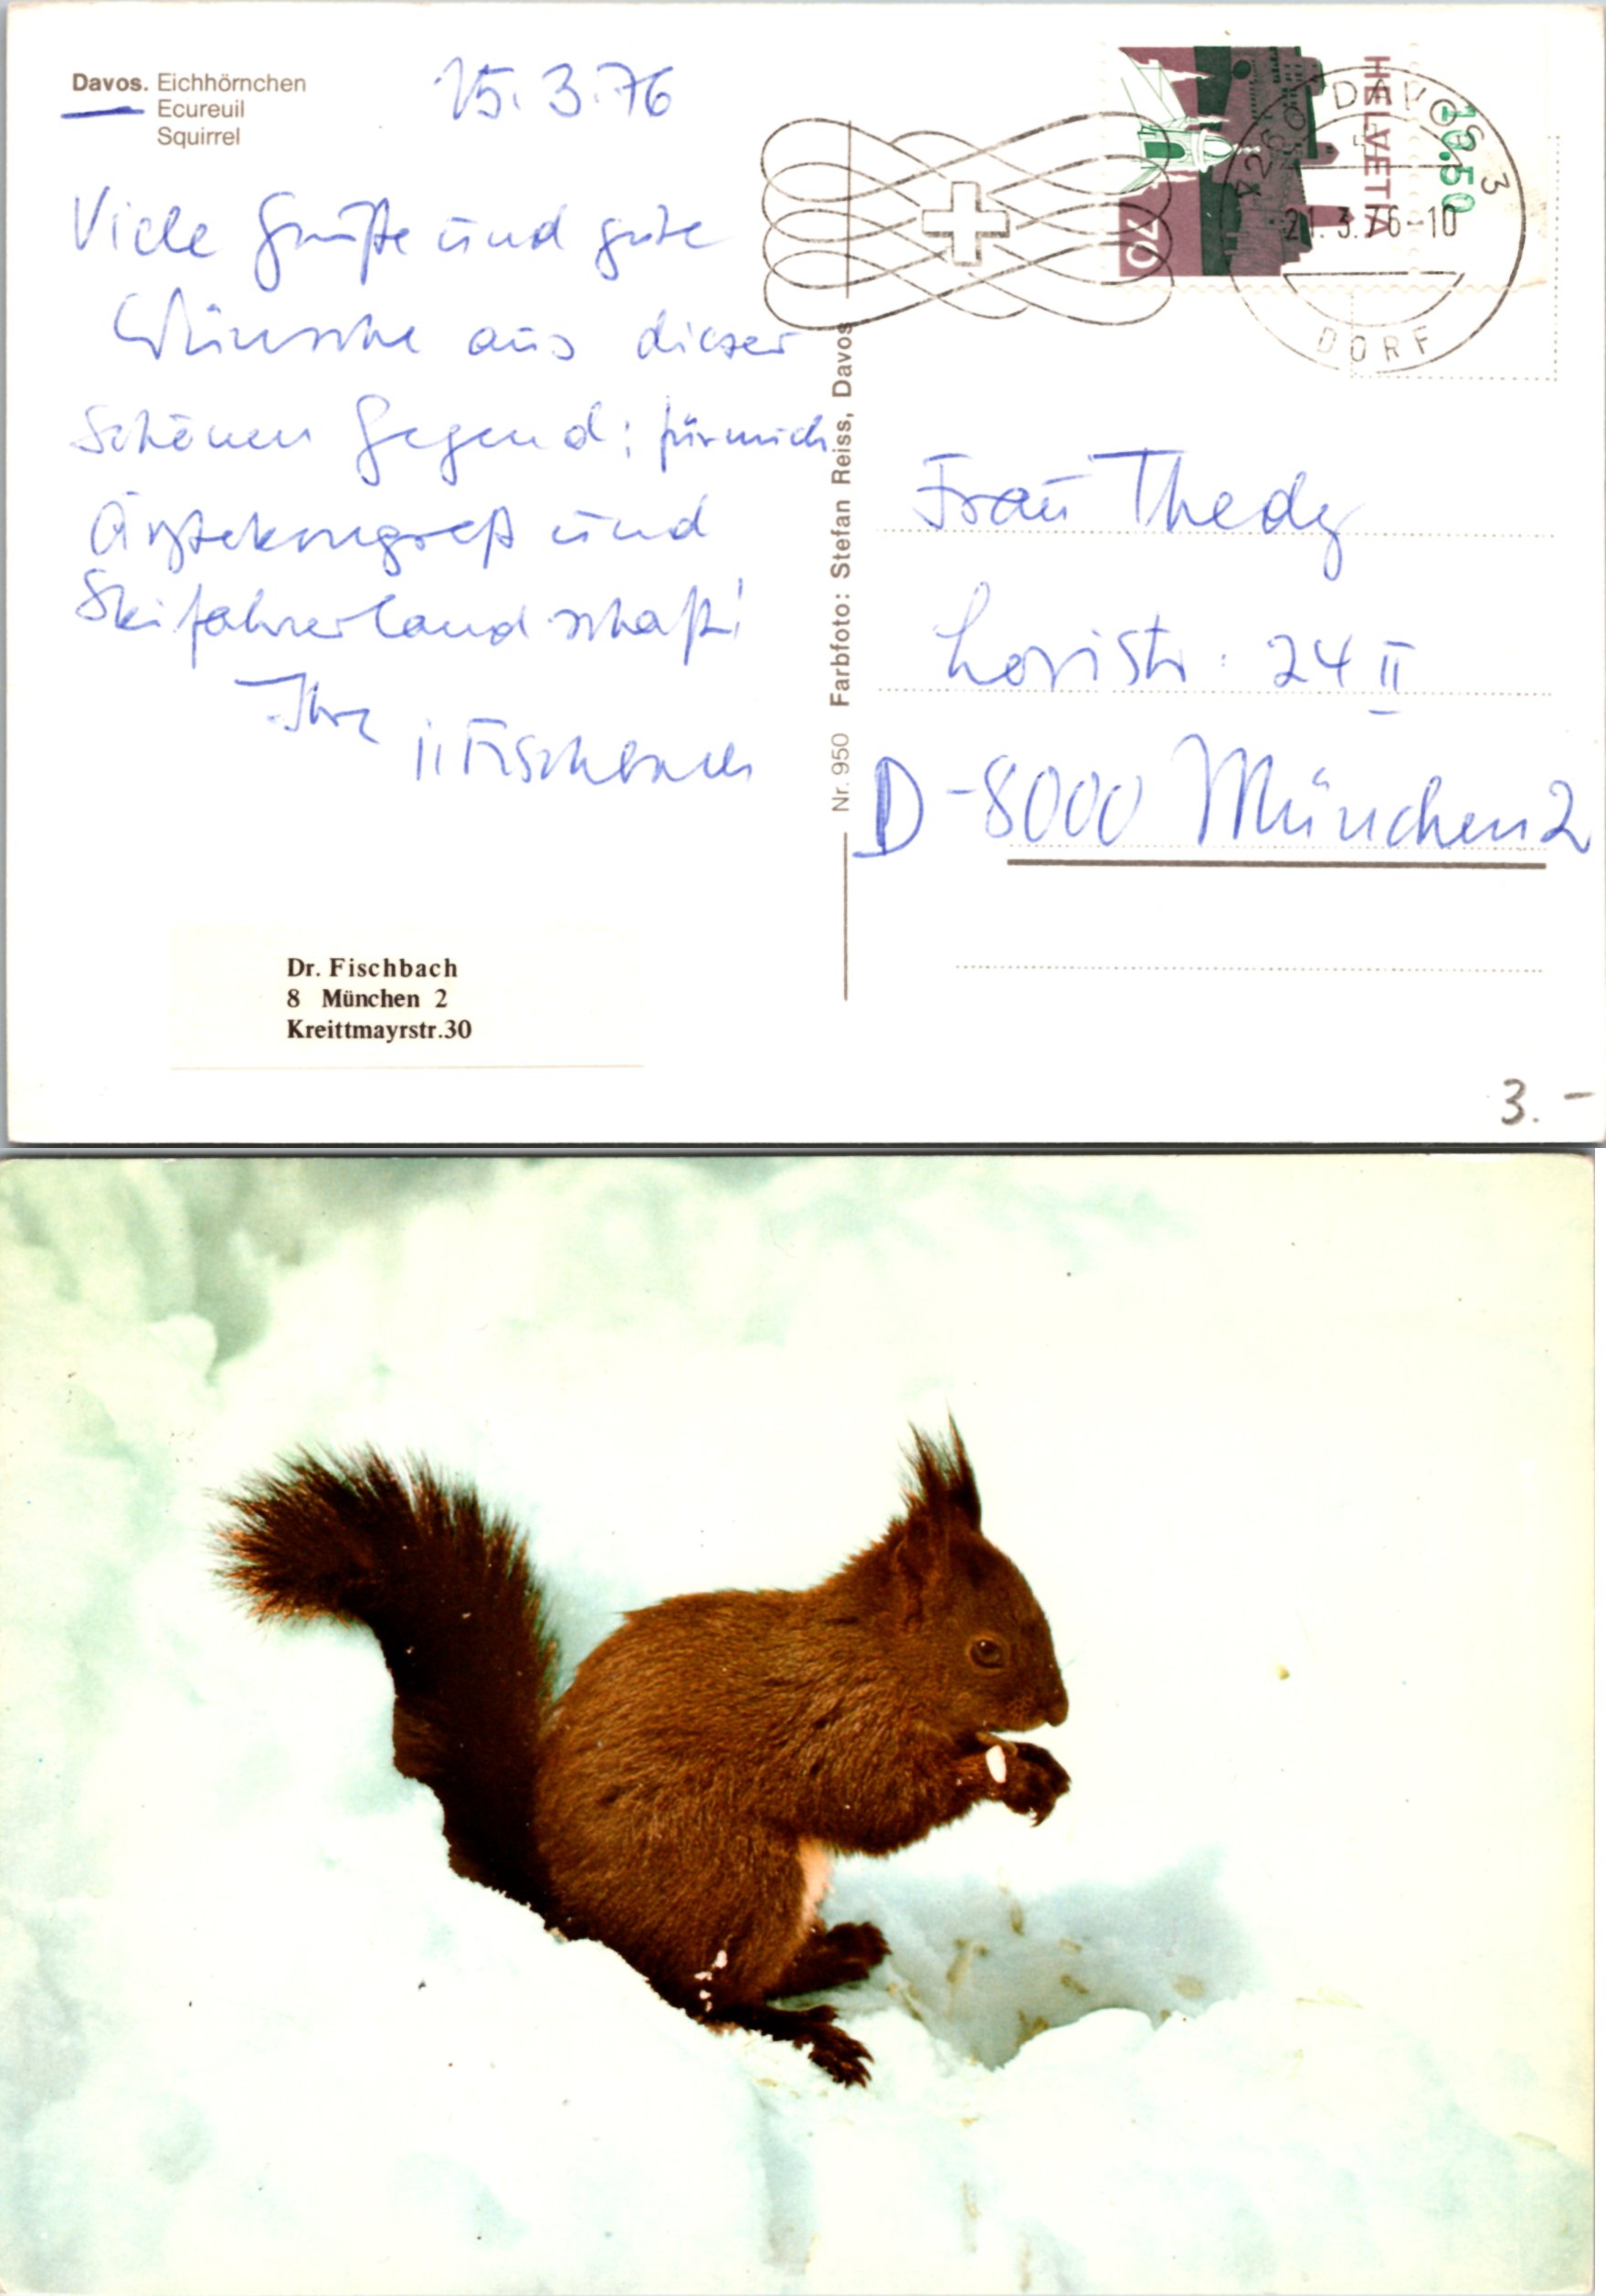 Davos. Eichhörnchen
Ecureuil
Squirrel
15.3.76
Viele Grüße und gute
Wünsche aus dieser
schönen Gegend; für mich
Ärztekongreß und
Skifahrerlandschaft!
Ihre
Fischbach
Dr. Fischbach
8 München 2
Kreittmayrstr.30
Nr. 950 Farbfoto: Stefan Reiss, Davos
HELVETIA
70
DAVOS 3
21.3.76-10
DORF
Frau Thedy
Loristr. 24 II
D-8000 München 2
3.-